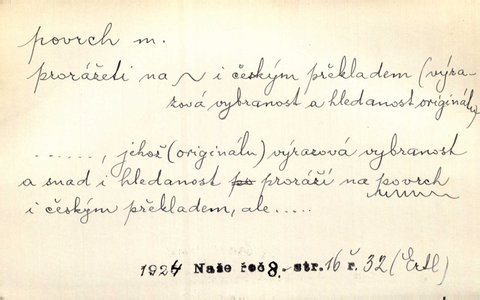 povrch m.
prorážeti na ~ i českým překladem (výra-
zová vybranost a hledanost originálu)
......, jehož (originálu) výrazová vybranost
a snad i hledanost po proráží na povrch
i českým překladem, ale .....
1924 Naše řeč 8.-str. 16 ř. 32 (Ertl)